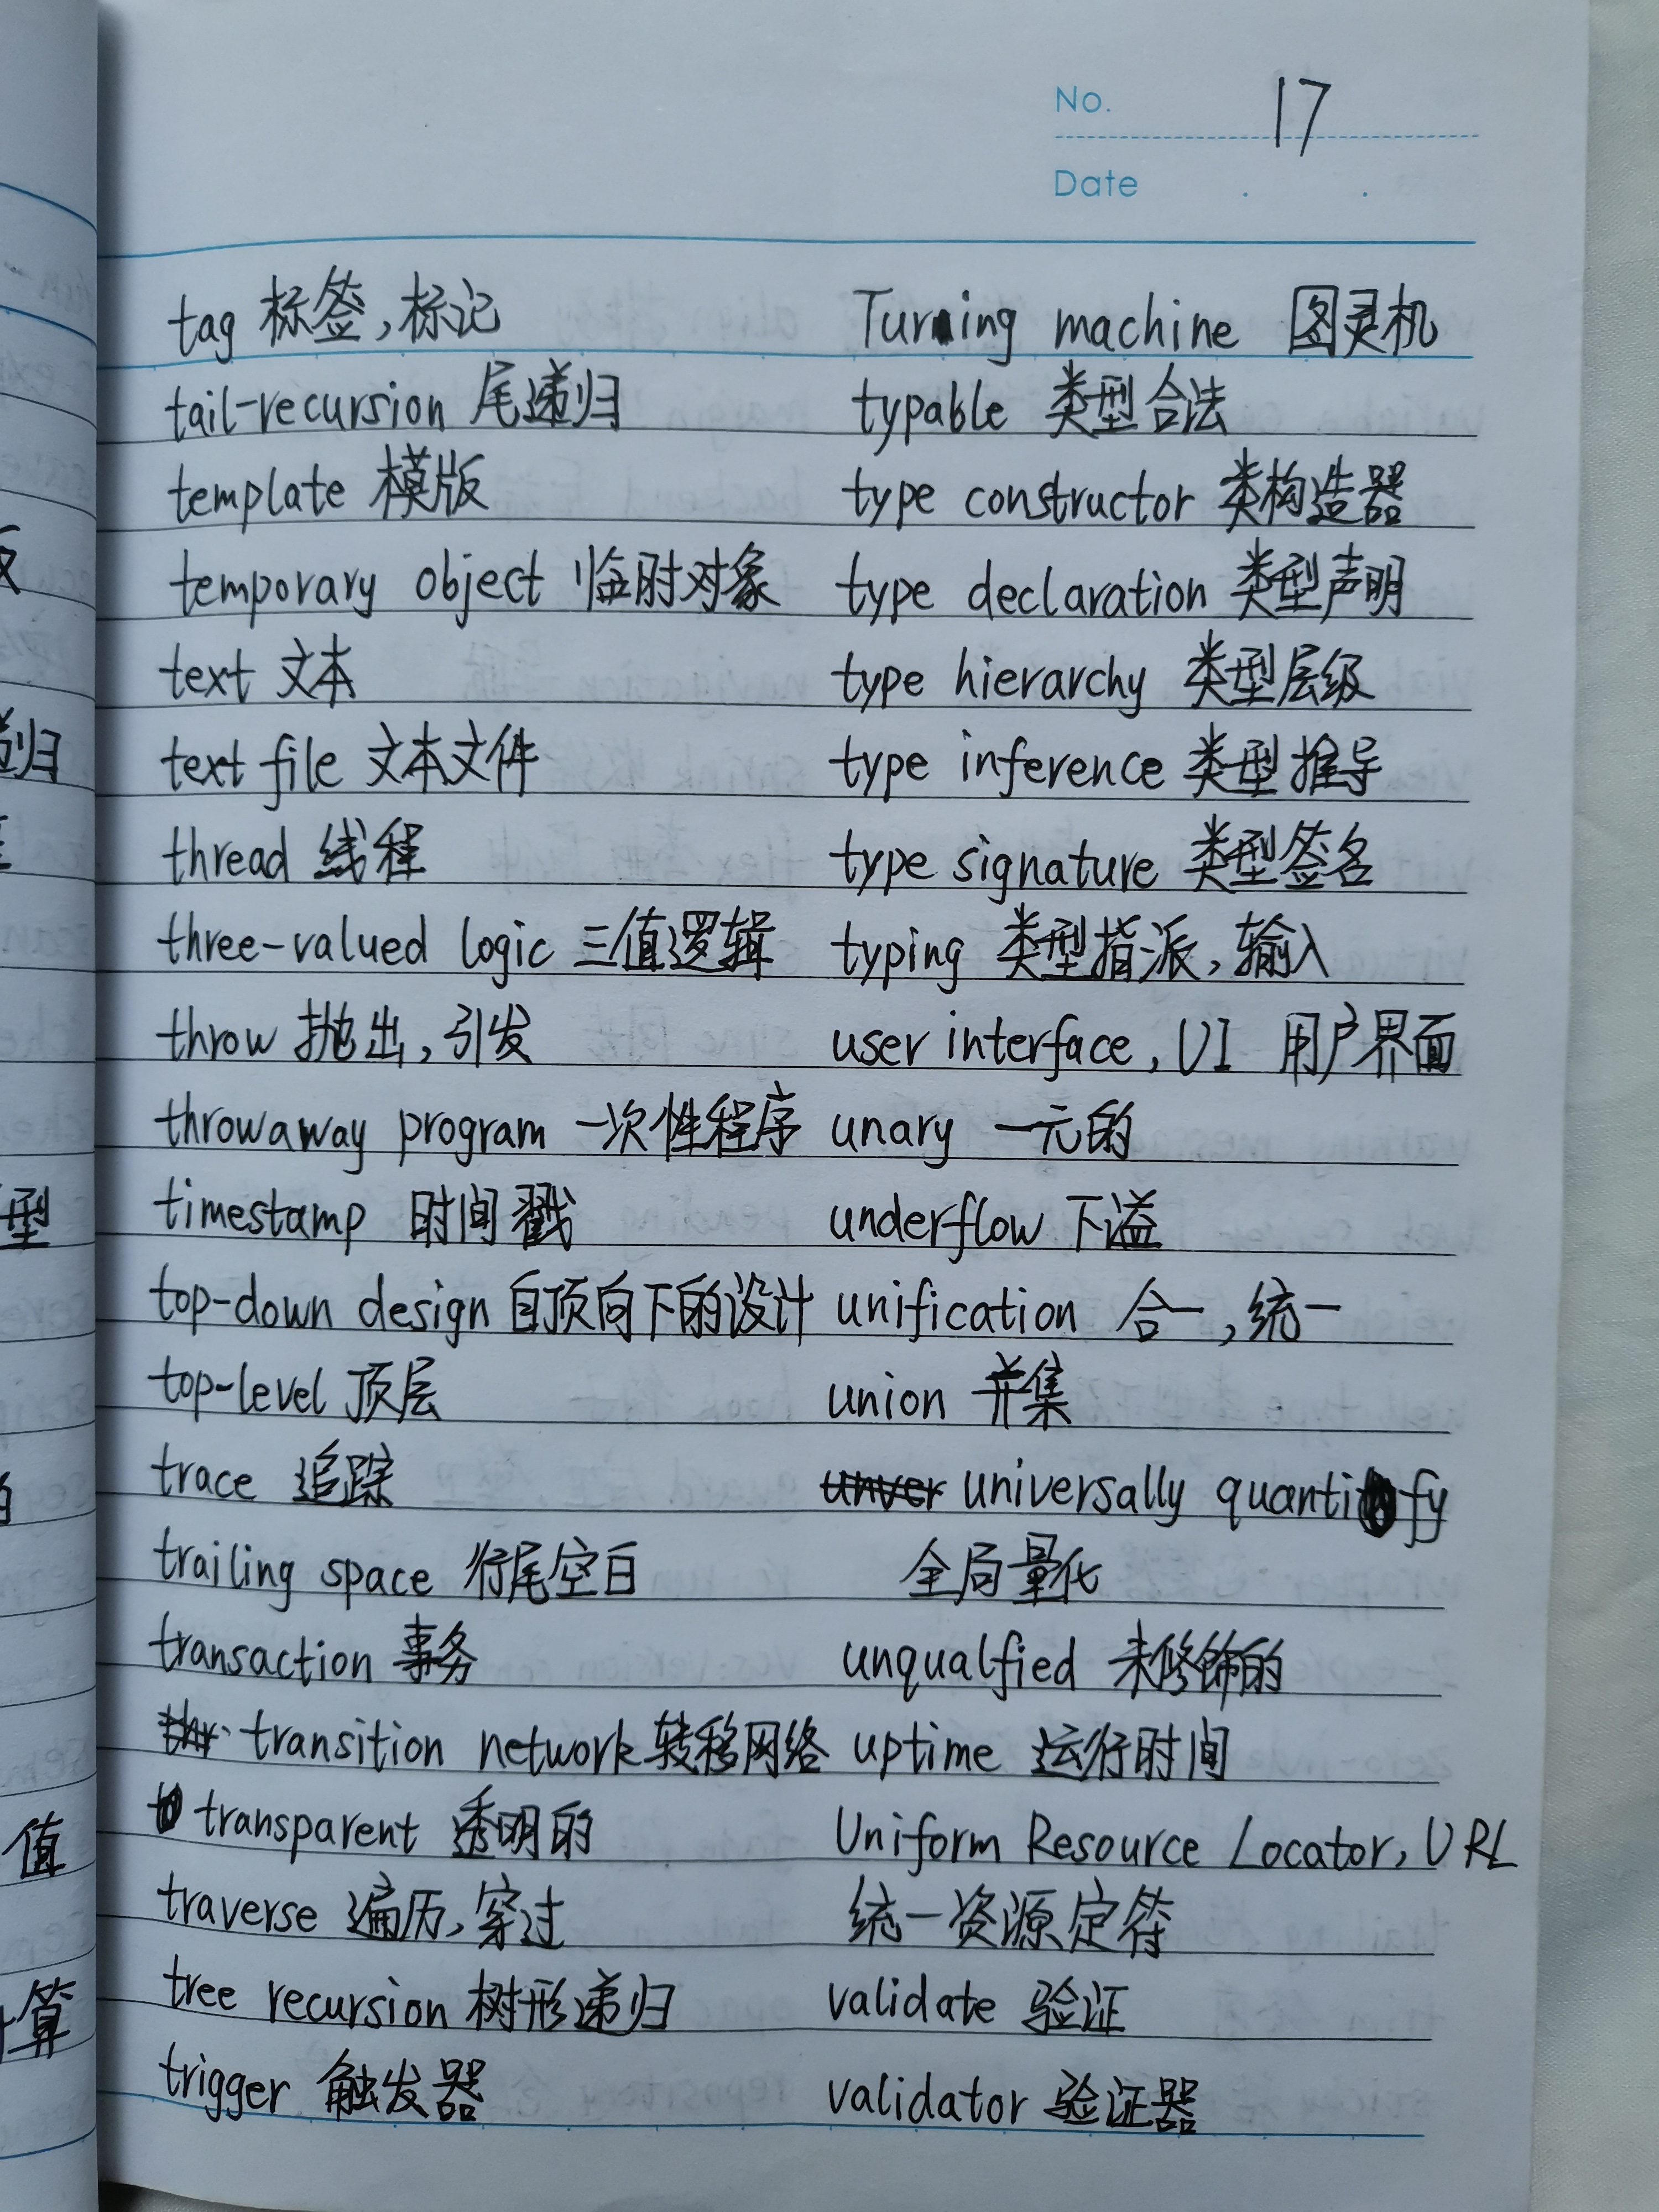 No. 17
Date
tag 标签,标记
tail-recursion 尾递归
template 模版
temporary object 临时对象
text 文本
text file 文本文件
thread 线程
three-valued logic 三值逻辑
throw 抛出,引发
throwaway program 一次性程序
timestamp 时间戳
top-down design 自顶向下的设计
top-level 顶层
trace 追踪
trailing space 行尾空白
transaction 事务
transition network 转移网络
transparent 透明的
traverse 遍历,穿过
tree recursion 树形递归
trigger 触发器
Turning machine 图灵机
typable 类型合法
type constructor 类构造器
type declaration 类型声明
type hierarchy 类型层级
type inference 类型推导
type signature 类型签名
typing 类型指派,输入
user interface, UI 用户界面
unary 一元的
underflow 下溢
unification 合一,统一
union 并集
universally quantify
全局量化
unqualfied 未修饰的
uptime 运行时间
Uniform Resource Locator, URL
统一资源定符
validate 验证
validator 验证器
归
型
值
算